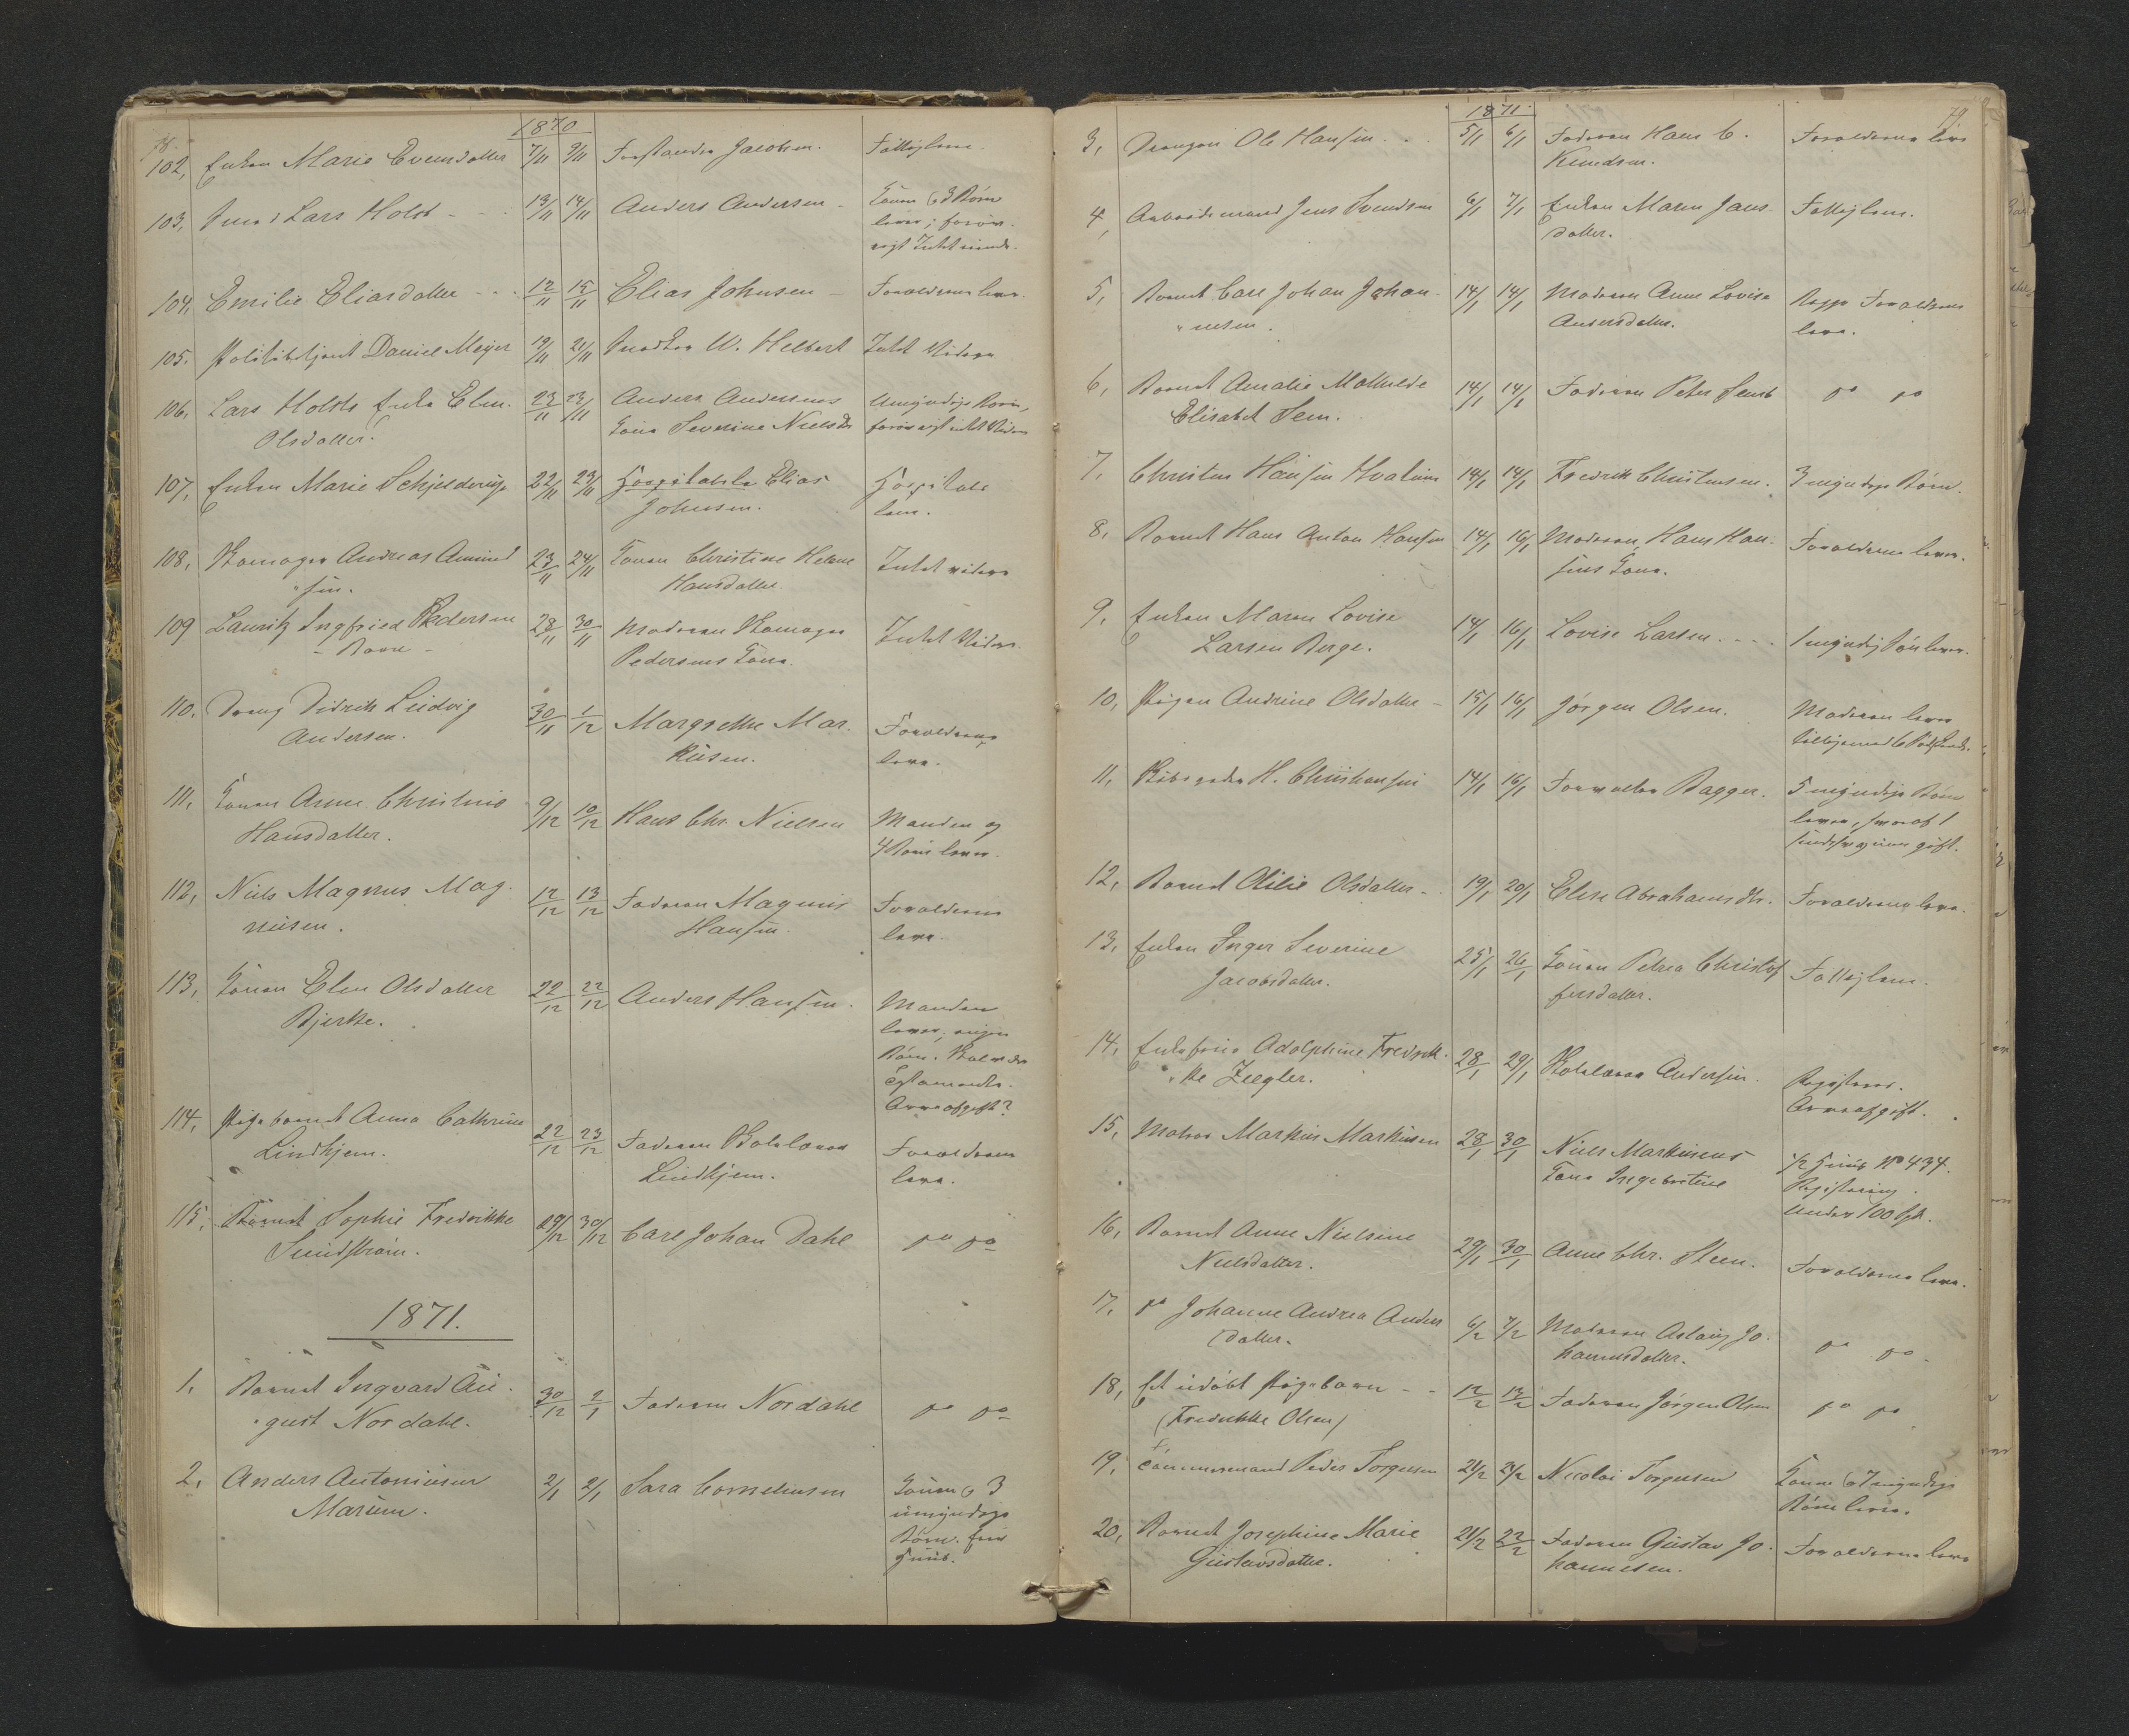 78.
1870
102, Enken Marie Evensdatter 7/11 9/11 Forstander Jacobsen. Fattiglem.
103, Lars Holst - - 13/11 14/11 Anders Andersen - Konen & 3 Børn
lever; forøv-
rigt Intet
104, Emilie Eliasdatter - - 12/11 15/11 Elias Johnsen - Forældrene lever.
105. Politibetjent Daniel Meyer 19/11 21/11 W. Helbert Intet Videre
106, Lars Holsts Enke Elen 23/11 23/11 Anders Andersens Umyndige Børn,
Olsdatter. Kone Severine Nielsdr forøvrigt intet Videre
107, Enken Marie Schjelderup 22/11 23/11 Hospitalslem Elias Hospitals
Johnsen. lem.
108, Skomager Andreas Amund 23/11 24/11 Konen Christine Helene Intet videre
"sen. Hansdatter.
109 Lauritz Ingfried Pedersen 28/11 30/11 Moderen Skomager Intet Videre
- Barn - Pedersens Kone.
110. Dreng Didrik Ludvig 30/11 1/12 Margrethe Mar- Forældrene
Andersen. kusen. lever.
111. Konen Anne Christine 9/12 10/12 Hans Chr. Nielsen Manden og
Hansdatter. 4 Børn lever.
112, Niels Magnus Mag- 12/12 13/12 Faderen Magnus Forældrene
nusen. Hansen. lever.
113, Konen Elen Olsdatter 22/12 22/12 Anders Hansen. Manden
Bjerke. lever, ingen
Børn.
Arveafgift?
114, Pigebarnet Anna Cathrine 22/12 23/12 Faderen Forældrene
Lindhjem. Lindhjem. lever.
115, Barnet Sophie Fredrikke 29/12 30/12 Carl Johan Dahl do do
Sundstrøm.
1871.
1. Barnet Ingvard Au- 30/12 2/1 Faderen Nordahl do do
gust Nordahl.
2, Anders Antoniusen 2/1 2/1 Sara Corneliusen Konen & 3
Marum. umyndige
Børn.
79.
1871.
3, Drengen Ole Hansen . . 5/1 6/1 Faderen Hans C. Forældrene lever
Knudsen.
4, Arbeidsmand Jens Svendsen 6/1 7/1 Enken Maren Jans- Fattiglem.
datter.
5, Barnet Carl Johan Johan- 14/1 14/1 Moderen Anne Lovise Begge Forældrene
"nesen. Andersdatter. lever.
6, Barnet Amalie Mathilde 14/1 14/1 Faderen Peter Semb do do
Elisabet Sem.
7, Christen Hansen Hvalum 14/1 14/1 Fredrik Christensen. 3 myndige Børn.
8, Barnet Hans Anton Hansen 14/1 16/1 Moderen, Hans Han- Forældrene lever.
sens Kone.
9, Enken Maren Lovise 14/1 16/1 Lovise Larsen. - - - 1 myndig Søn lever.
Larsen Berge.
10, Pigen Andrine Olsdatter - 15/1 16/1 Jørgen Olsen. Moderen lever
tilligemed 6 Sødskende.
11, H. Christiansen 14/1 16/1 Forvalter Bagger. 5 myndige Børn
lever, hvoraf 1
gift.
12, Barnet Olilie Olsdatter - 19/1 20/1 Elise Abrahamsdtr. Forældrene lever.
13, Enken Inger Severine 25/1 26/1 Konen Petrea Christof- Fattiglem.
Jacobsdatter. fersdatter.
14, Enkefrue Adolphine Fredrik- 28/1 29/1 Andersen.
"ke Ziegler. Arveafgift.
15, Matros Markus Markusen 28/1 30/1 Niels Markusens 1/2 Huus No 434.
Kone Ingebortine Registrering.
under 100 Spd.
16, Barnet Anne Nielsine 29/1 30/1 Anne Chr. Steen. Forældrene lever.
Nielsdatter.
17, do Johanne Andrea Anders 6/2 7/2 Moderen Aslaug Jo- do do
datter. hannesdatter.
18, Et udøbt Pigebarn - - 12/2 13/2 Faderen Jørgen Olsen do do
(Fredrikke Olsen)
19, Tømmermand Peder Torgersen 21/2 21/2 Nicolai Torgersen Konen & 7 myndige
Børn lever.
20, Barnet Josephine Marie 21/2 22/2 Faderen Gustav Jo- Forældrene lever
Gustavsdatter. hannesen.